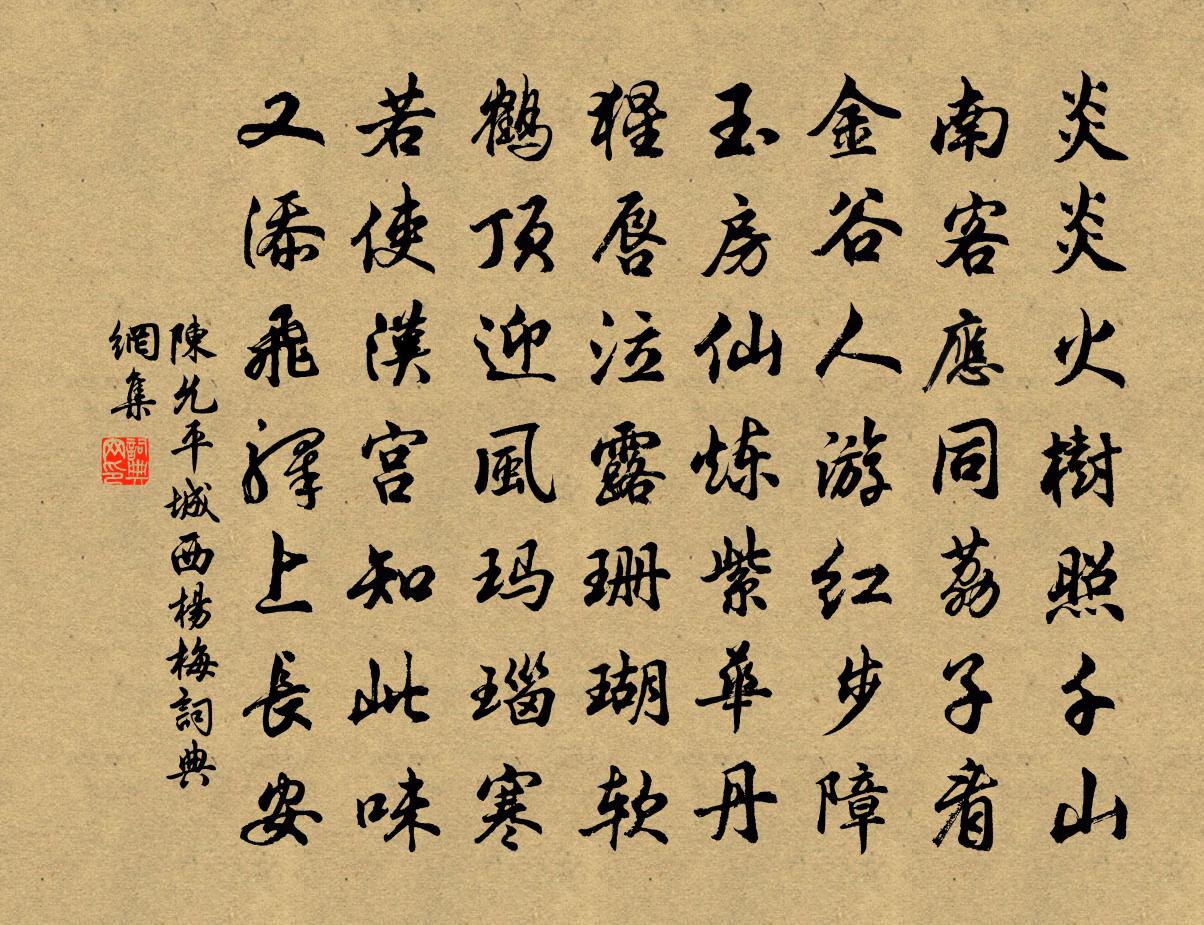 炎炎火樹照千山
南客應同荔子看
金谷人游红步障
玉房仙炼紫華丹
猩唇泣露珊瑚软
鶴顶迎風玛瑙寒
若使漢宫知此味
又添飛驛上長安
陳允平城西楊梅詞典
網集
詞典网印